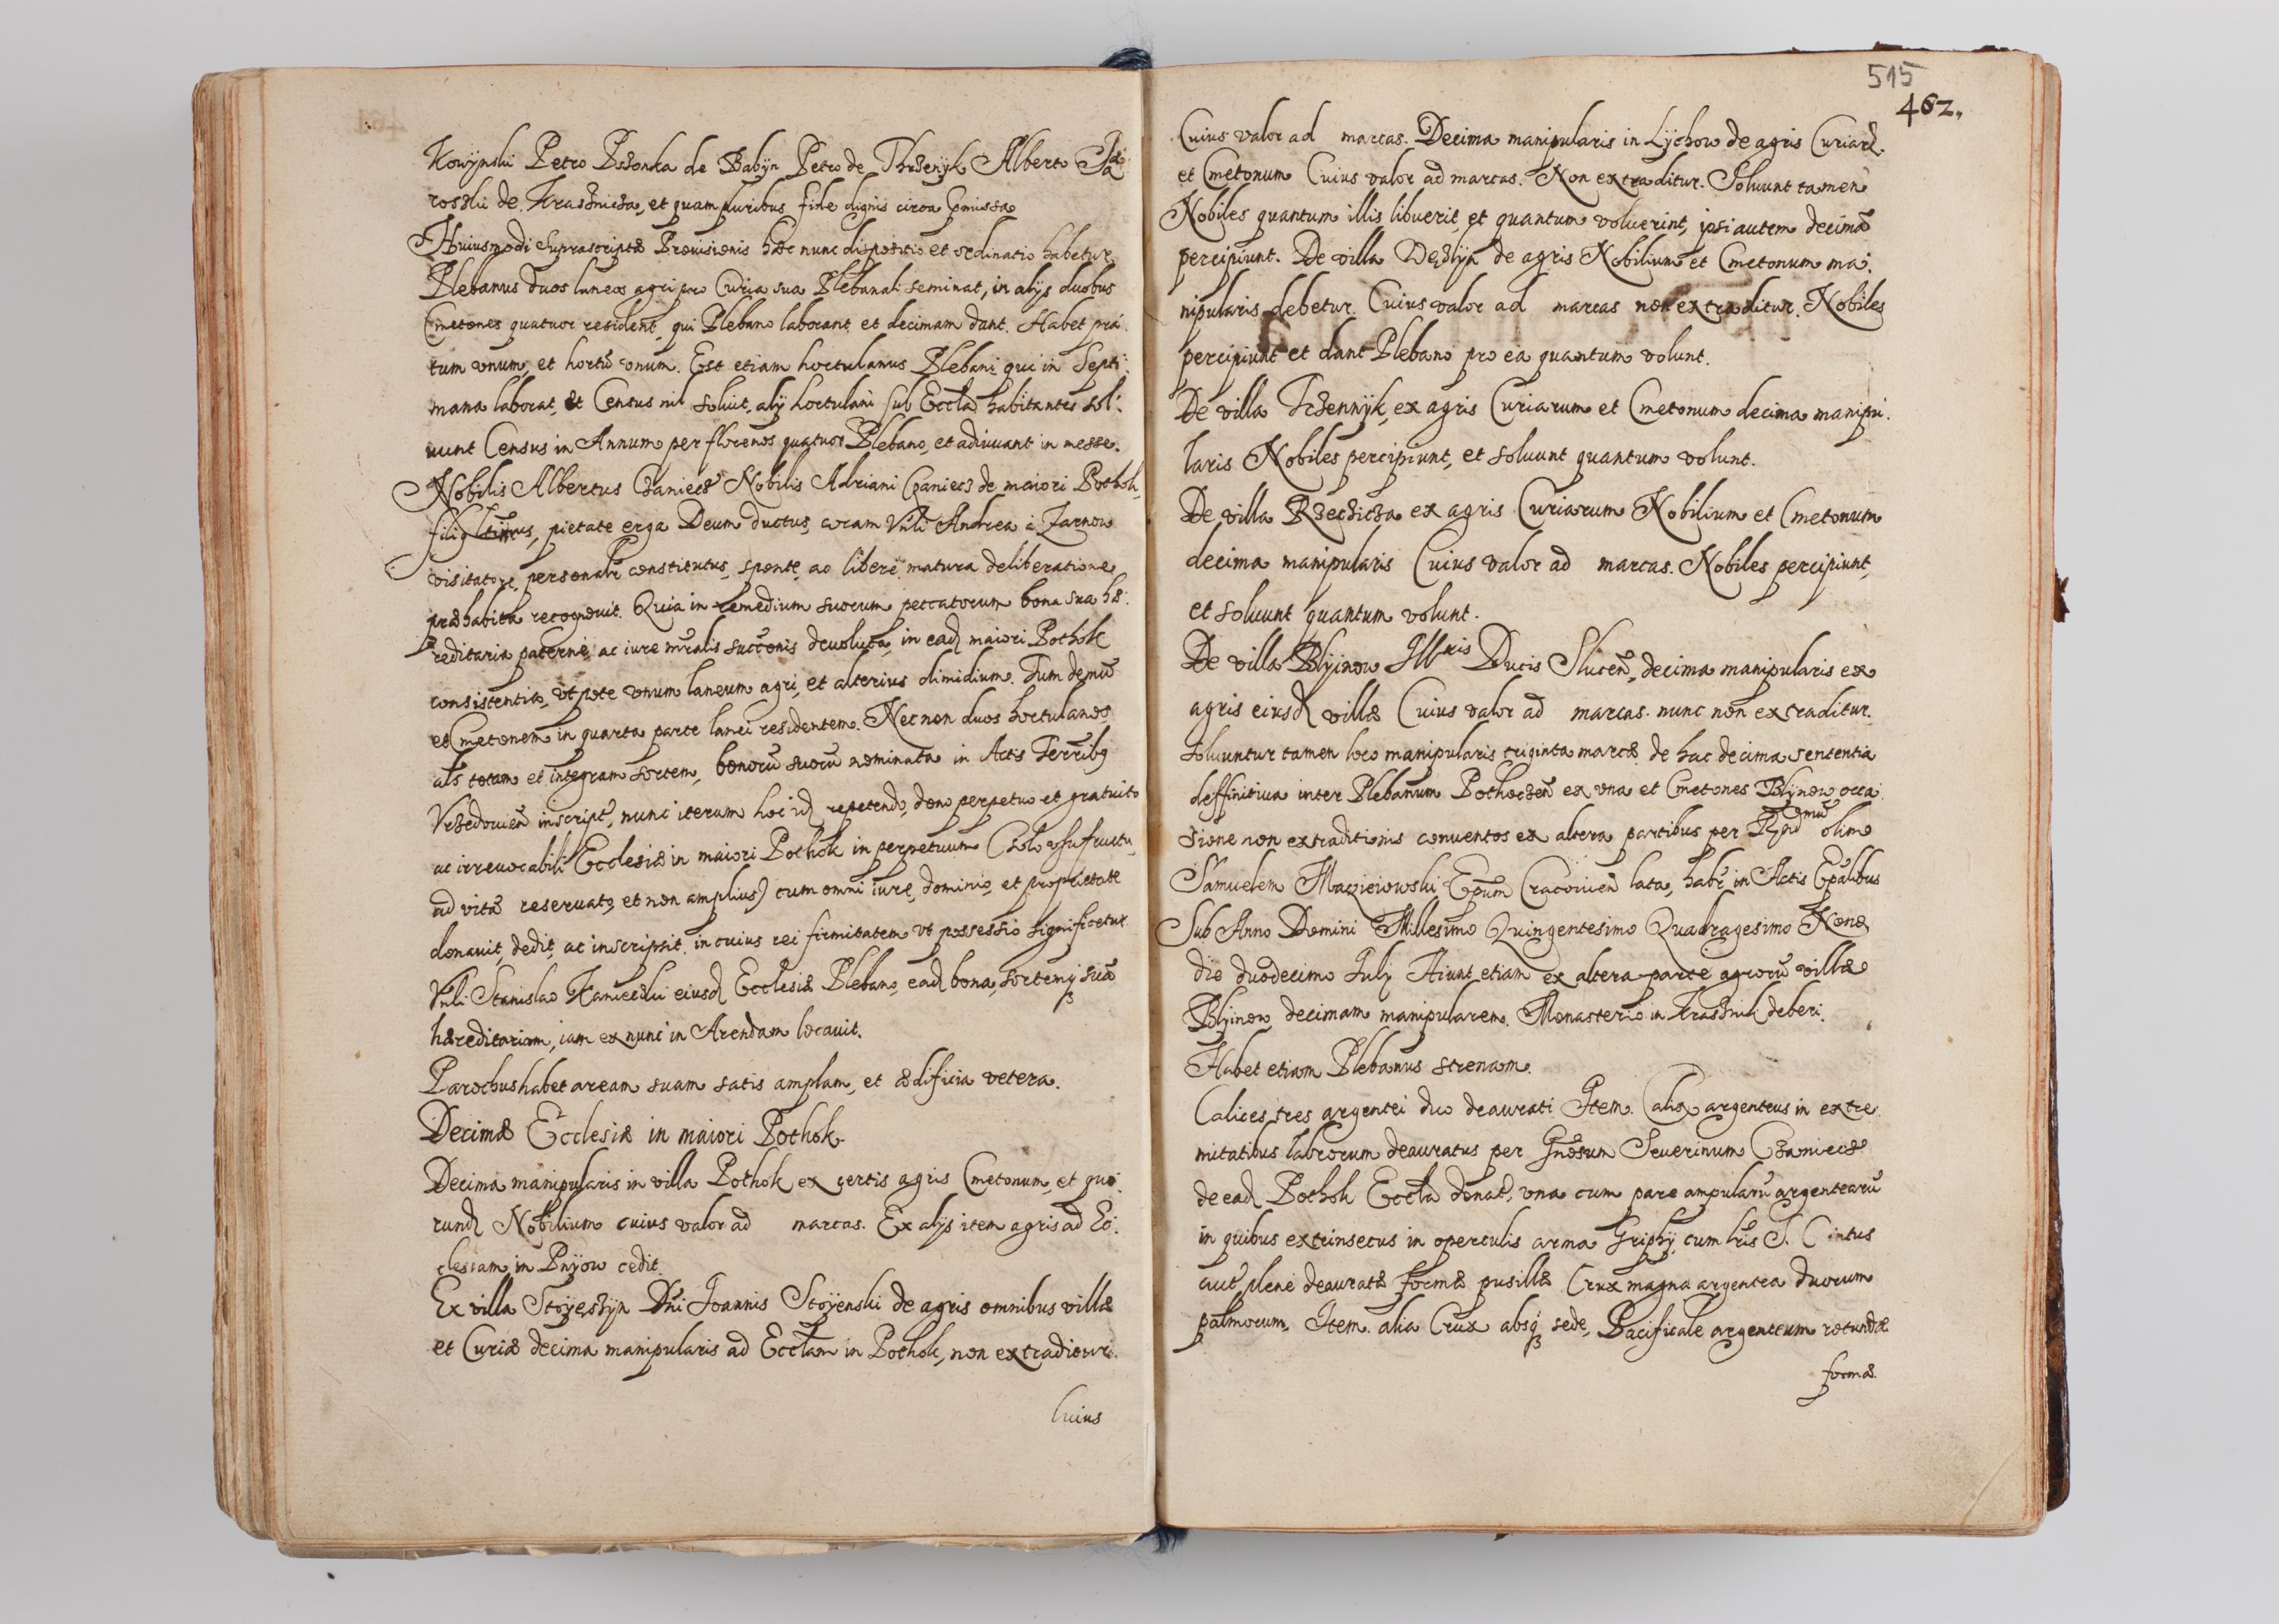 Kowÿnski Petro Pszonka de Babÿn Petro de Thrzenÿk Alberto Ja
roszki de Krasznicza, et quampluribus fide dignis circa pmissa
Huiusmodi suprascriptæ Provisionis hæc nunc dispositio et ordinatio habetur
Plebanus duos laneos agri pro Curia sua Plebanali seminat, in alijs duobus
Cmetones quatuor resident, qui Plebano laborant et decimam dant. Habet pra
tum vnum, et hortū vnum. Est etiam hortulanus Plebani qui in Septi
mana laborat, et Census nil soluit, alij hortulani sub Eccla habitantes sol
uunt Census in Annum per florenos quatuor Plebano, et adiuuant in messe.
Nobilis Albertus Czaniecz Nobilis Adriani Czaniecz de maiori Pothok
filig ltimus, pietate erga Deum ductus, coram Vnli Andrea à Zarnow
visitatore, personalr constitutus, sponte, ac liberè matura deliberatione
præhabita recognouit. Quia in remedium suorum peccatorum bona sua hæ
reditaria paternè, ac iure mralis succonis deuoluta, in ead maiori Pothok
consistentia, vt pote vnum laneum agri, et alterius dimidium. Tum demū
et Cmetonem in quarta parte lanei residentem. Necnon duos hortulanos
als totam et integram sortem, bonorū suorū nominata in Actis Terrribg
Vrzedouien inscript, nunc iterum hoc id repetendo, dono perpetuo et gratuito
ac irreuocabili Ecclesiæ in maiori Pothok in perpetuum (solo vsufructu
ad vitā reseruato, et non amplius) cum omni iure, dominio, et proprietate
donauit, dedit, ac inscripsit. in cuius rei firmitatem vt possessio significetur
Vnli Stanislao Kanieczki eiusd Ecclesiæ Plebano, ead bona, sortemq suā
hæreditariam, iam ex nunc in Arendam locauit.
Parochus habet aream suam satis amplam, et ædificia vetera.
Decimæ Ecclesiæ in maiori Pothok.
Decima manipularis in villa Pothok ex certis agris Cmetonum, et quo
rund Nobilium cuius valor ad marcas. Ex alijs item agris ad Ec
clesiam in Pnÿow cedit.
Ex villa Stoÿeszÿn Dni Joannis Stoÿenski de agris omnibus villæ
et Curiæ decima manipularis ad Ecclam in Pothok, non extraditur.
Cuius
515
462.
Cuius valor ad marcas. Decima manipularis in Lÿchow de agris Curiar.
et Cmetonum Cuius valor ad marcas. Non extraditur. Soluunt tamen
Nobiles quantum illis libuerit, et quantum voluerint, ipsi autem decimā
percipiunt. De villa Wezlÿn de agris Nobilium et Cmetonum ma
nipularis debetur. Cuius valor ad marcas non extraditur. Nobiles
percipiunt et dant Plebano pro ea quantum volunt.
De villa Trzennÿk, ex agris Curiarum et Cmetonum decima manipu
laris Nobiles percipiunt, et soluunt quantum volunt.
De villa Rzeczicza ex agris Curiarum Nobilium et Cmetonum
decima manipularis Cuius valor ad marcas. Nobiles percipiunt,
et soluunt quantum volunt.
De villa Blÿinow Illris Ducis Slucen, decima manipularis ex
agris eiusd villæ Cuius valor ad marcas. nunc non extraditur.
soluuntur tamen loco manipularis triginta marcæ de hac decima sententia
deffinitiua inter Plebanum Pothoczen ex vna et Cmetones Blÿnow occa
sione non extraditionis conuentos ex altera partibus per Rnd mū olim
Samuelem Maczieiowski Epum Cracouien lata, habr in Actis Epalibus
Sub Anno Domini Millesimo Quingentesimo Quadragesimo Nono
die duodecimo Julij Aiunt etiam ex altera parte agrorū villæ
Blÿinow decimam manipularem Monasterio in Krasznik deberi.
Habet etiam Plebanus strenam.
Calices tres argentei duo deaurati Item. Calix argenteus in extre
mitatibus labrorum deauratus per Gnosum Seuerinum Czaniecz
de ead Pothok Eccla donat, vna cum pare ampularū argentearū
in quibus extrinsecus in operculis arma Griphÿ cum lris S. C intus
aut plenè deauratæ formæ pusillæ Crux magna argentea duorum
palmorum, Item. alia Crux absq sede, Pacificale argenteum rotundæ
formæ.